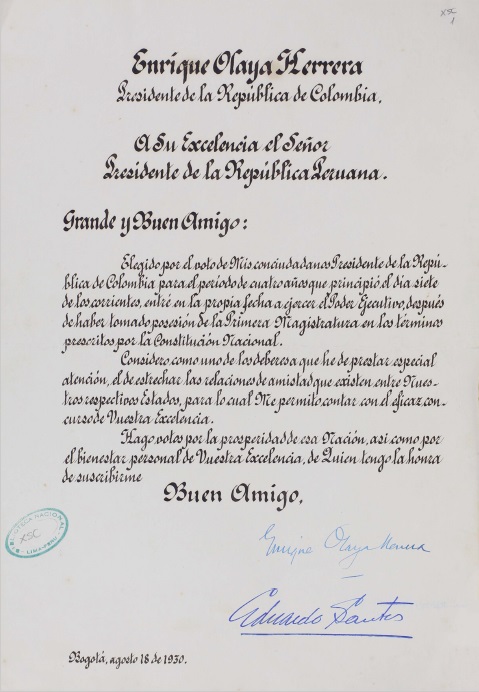 XSC
1
Enrique Olaya Herrera
Presidente de la República de Colombia,
A Su Excelencia el Señor
Presidente de la República Peruana.
Grande y Buen Amigo:
Elegido por el voto de Mis conciudadanos Presidente de la Repú-
blica de Colombia para el período de cuatro años que principió el día siete
de los corrientes, entré en la propia fecha a ejercer el Poder Ejecutivo, después
de haber tomado posesión de la Primera Magistratura en los términos
prescritos por la Constitución Nacional.
Considero como uno de los deberes a que he de prestar especial
atención, el de estrechar las relaciones de amistad que existen entre Nues-
tros respectivos Estados, para lo cual Me permito contar con el eficaz con-
curso de Vuestra Excelencia.
Hago votos por la prosperidad de esa Nación, así como por
el bienestar personal de Vuestra Excelencia, de Quien tengo la honra
de suscribirme
Buen Amigo,
Enrique Olaya Herrera
Eduardo Santos
BIBLIOTECA NACIONAL
XSC
LIMA-PERU
Bogotá, agosto 18 de 1930.